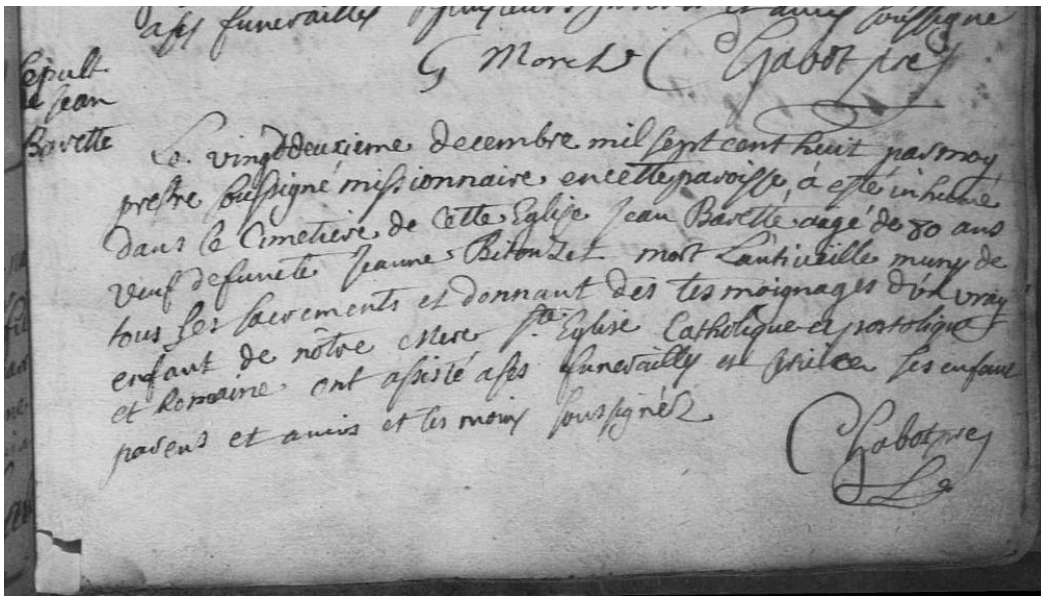 a ses funerailles plusieurs parens et amis soussigné
G Morel Chabot pre
Sepult
de Jean
Barette
Le vingtdeuxieme decembre mil sept cent huit par moy
prestre soussigné missionnaire en cette paroisse, à esté inhumé
dans le Cimetiere de cette Eglise Jean Barette aagé de 80 ans
veuf defuncte Jeanne Bitouzet mort Lantiveille muny de
tous les sacrements et donnant des tesmoignages d'un vray
enfant de nôtre Mere ste. Eglise Catholique apostolique
et Romaine. ont assisté a ses funerailles et ses enfans
parens et amis et tesmoins soussignéz
Chabot pre